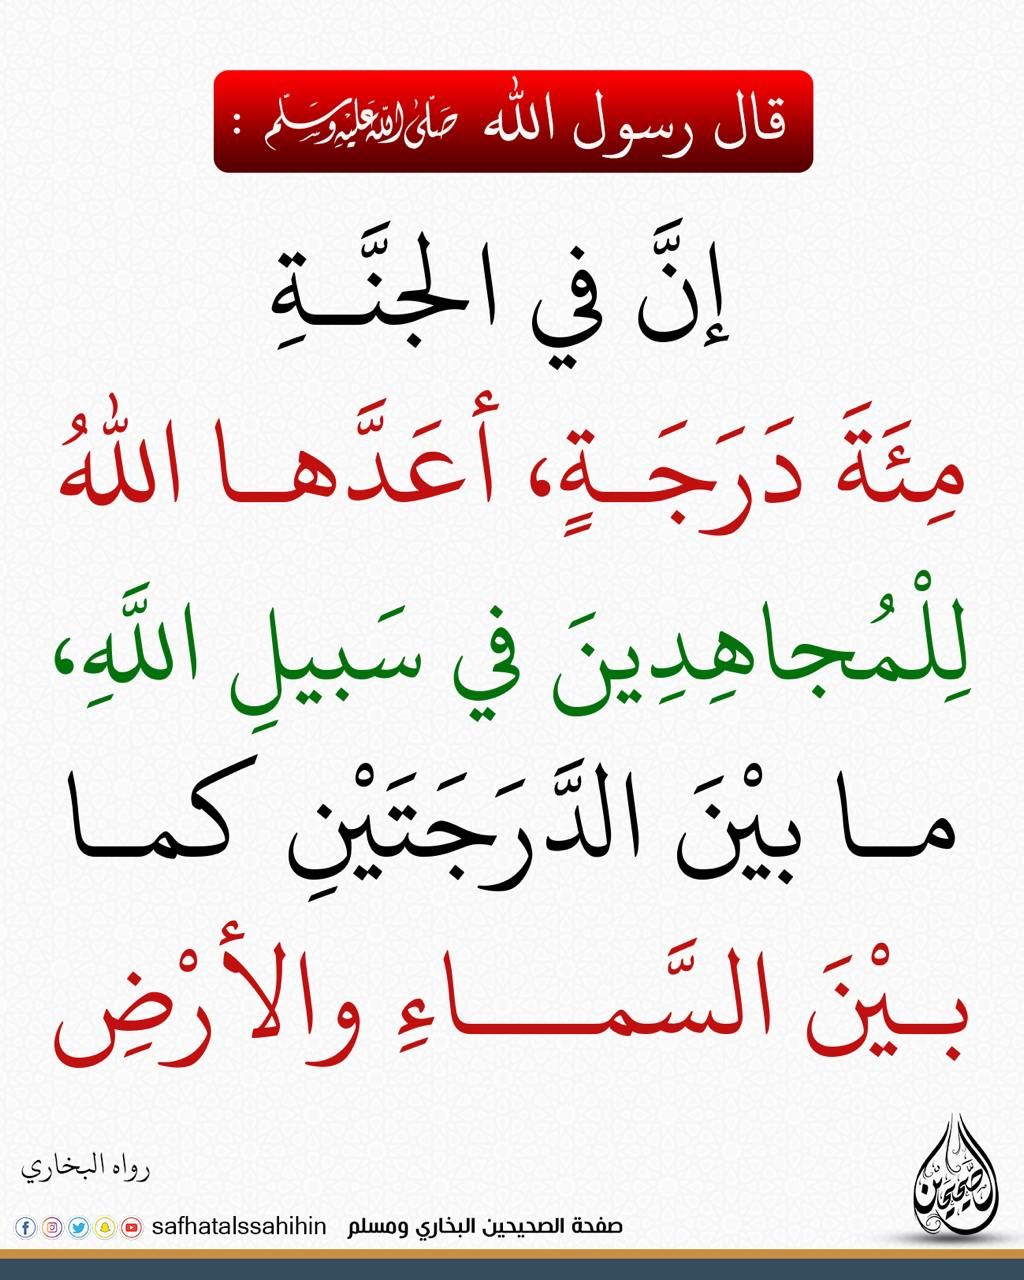 قال رسول الله صَلَّى اللَّهُ عَلَيْهِ وَسَلَّم :
إنَّ في الجنَّـةِ
مِئَةَ دَرَجَـةٍ، أعَدَّهـا اللهُ
لِلْمُجاهِدِينَ في سَبيلِ اللَّهِ،
مـا بيْنَ الدَّرَجَتَيْنِ كمـا
بـيْنَ السَّمـاءِ والأرْضِ
رواه البخاري
الصحيحين
صفحة الصحيحين البخاري ومسلم safhatalssahihin